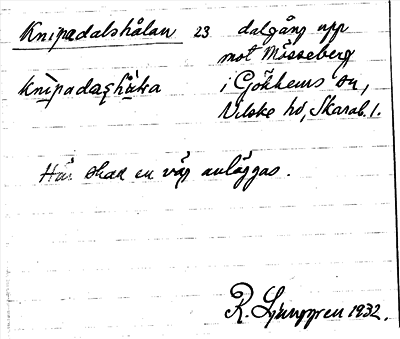 Knipadalshålan 23 dalgång upp
mot Mösseberg
knìpadaʂhåla i Gökhems sn,
Vilske hd, Skarab. l.
Här skad en väg anläggas.
R. Ljunggren 1932.